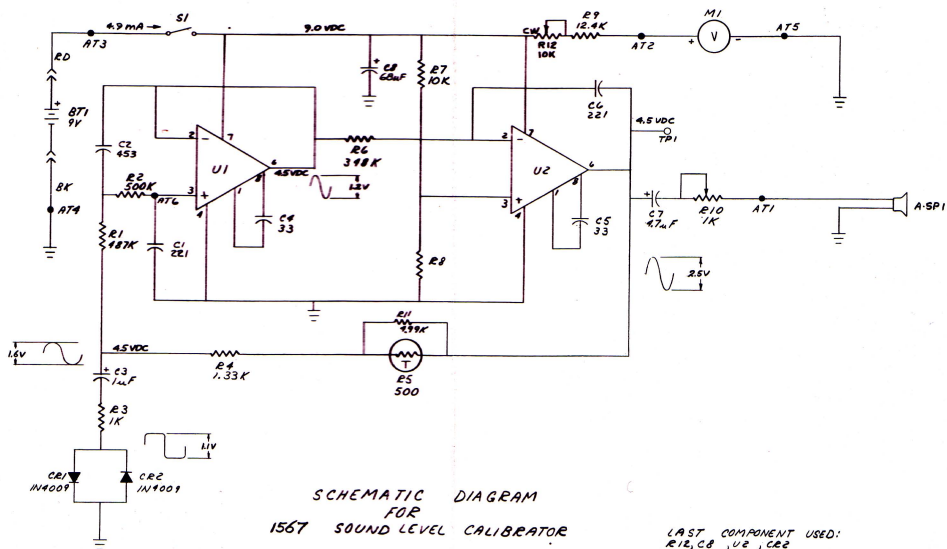 4.9 mA
S1
9.0 VDC
R9
12.4K
M1
AT3
CW
R12
10K
AT2
+
V
-
AT5
RD
+
C8
68uF
R7
10K
+
BT1
9V
C6
221
4.5 VDC
TP1
C2
453
2
-
7
U1
6
4.5VDC
R6
348K
2
-
7
U2
6
BK
R2
500K
AT6
3
+
4
1
8
1.2V
3
+
4
1
8
AT4
C4
33
C5
33
+
C7
4.7uF
R10
1K
AT1
A-SP1
R1
487K
C1
221
R8
2.5V
R11
4.99K
1.6V
4.5VDC
R4
1.33K
T
R5
500
+
C3
1uF
R3
1K
1.1V
CR1
1N4009
CR2
1N4009
SCHEMATIC DIAGRAM
FOR
1567 SOUND LEVEL CALIBRATOR
LAST COMPONENT USED:
R12, C8 , U2 , CR2